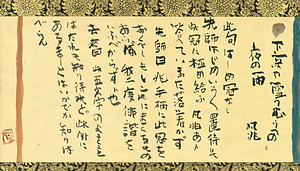 下京や雪つむ上の
夜の雨 凡兆
此句はじめ冠なし
先師はじめいろいろ置侍りて
此冠に極め給ふ 凡兆あと
答へていまだ落着かず
先師曰 兆手柄に此冠を
おくべし もしまさるもの
あらば我二度俳諧を
いふべからずと也
去来曰 此五文字のよきこと
はたれも知り侍れど 此外に
あるまじとはいかでか知りは
べらん